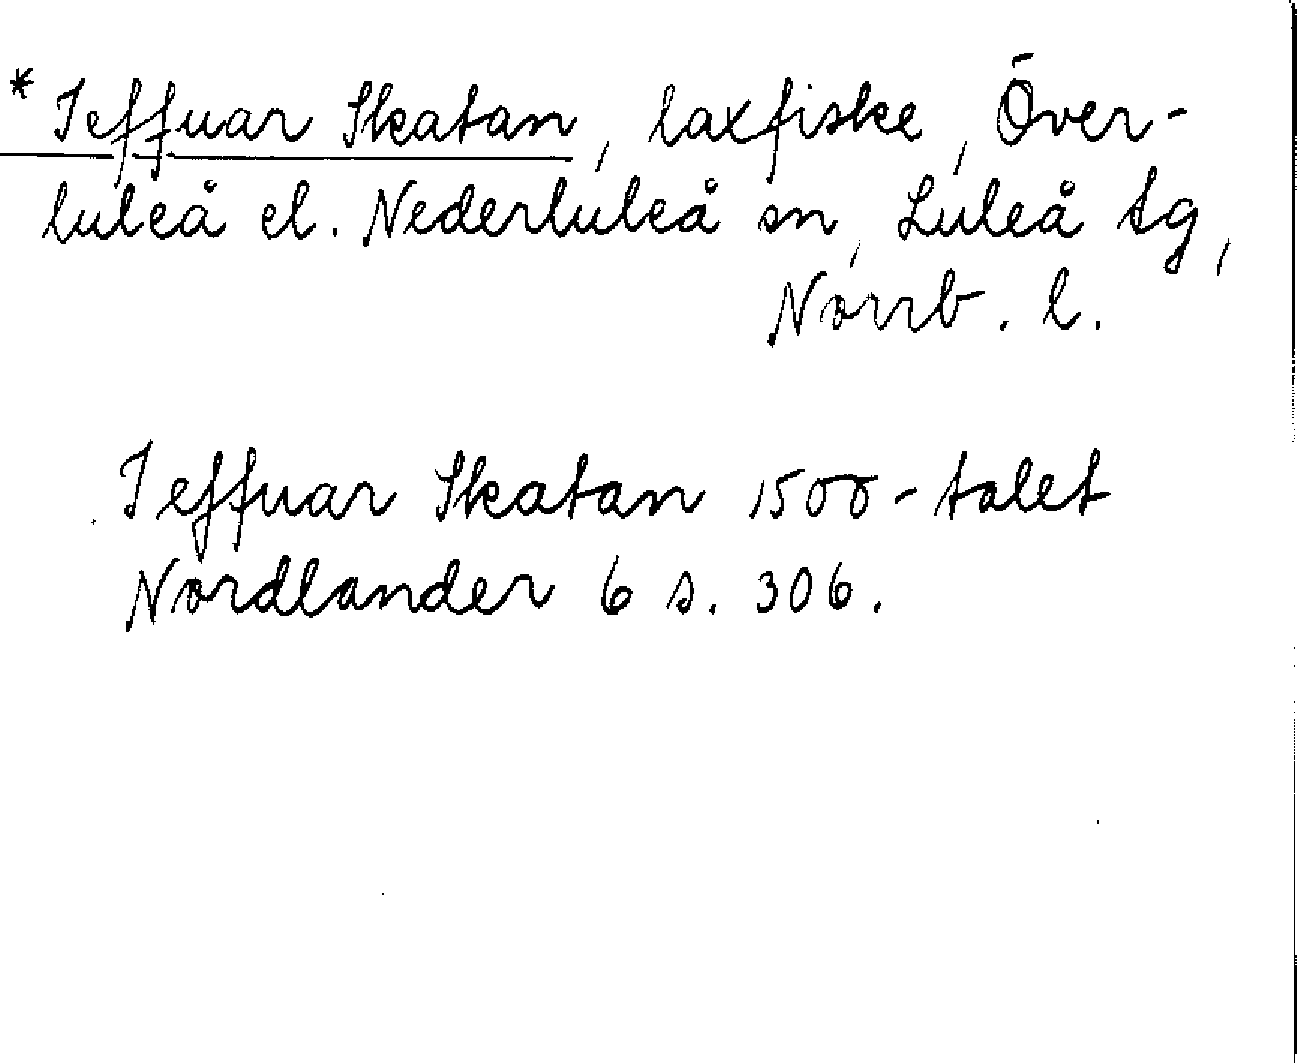 * Jeffuar Skatan, laxfiske, Över-
luleå el. Nederluleå sn, Luleå tg,
Norrb. l.
Jeffuar Skatan 1500-talet
Nordlander 6 s. 306.